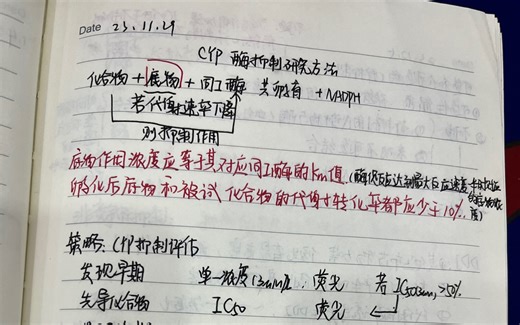 Date 23.11.29
CYP 酶抑制研究方法
化合物 + 底物 + 同工酶 共孵育 + NADPH
若代谢速率下降
则抑制作用
底物作用浓度应等于其对应同工酶的km值.(酶促反应达到最大反应速度一半时对应的底物浓度)
孵化后底物和被试化合物的代谢转化率都应少于10%.
策略: CYP抑制评估
发现早期 单一浓度 荧光 若 >50%
先导化合物 IC50 荧光